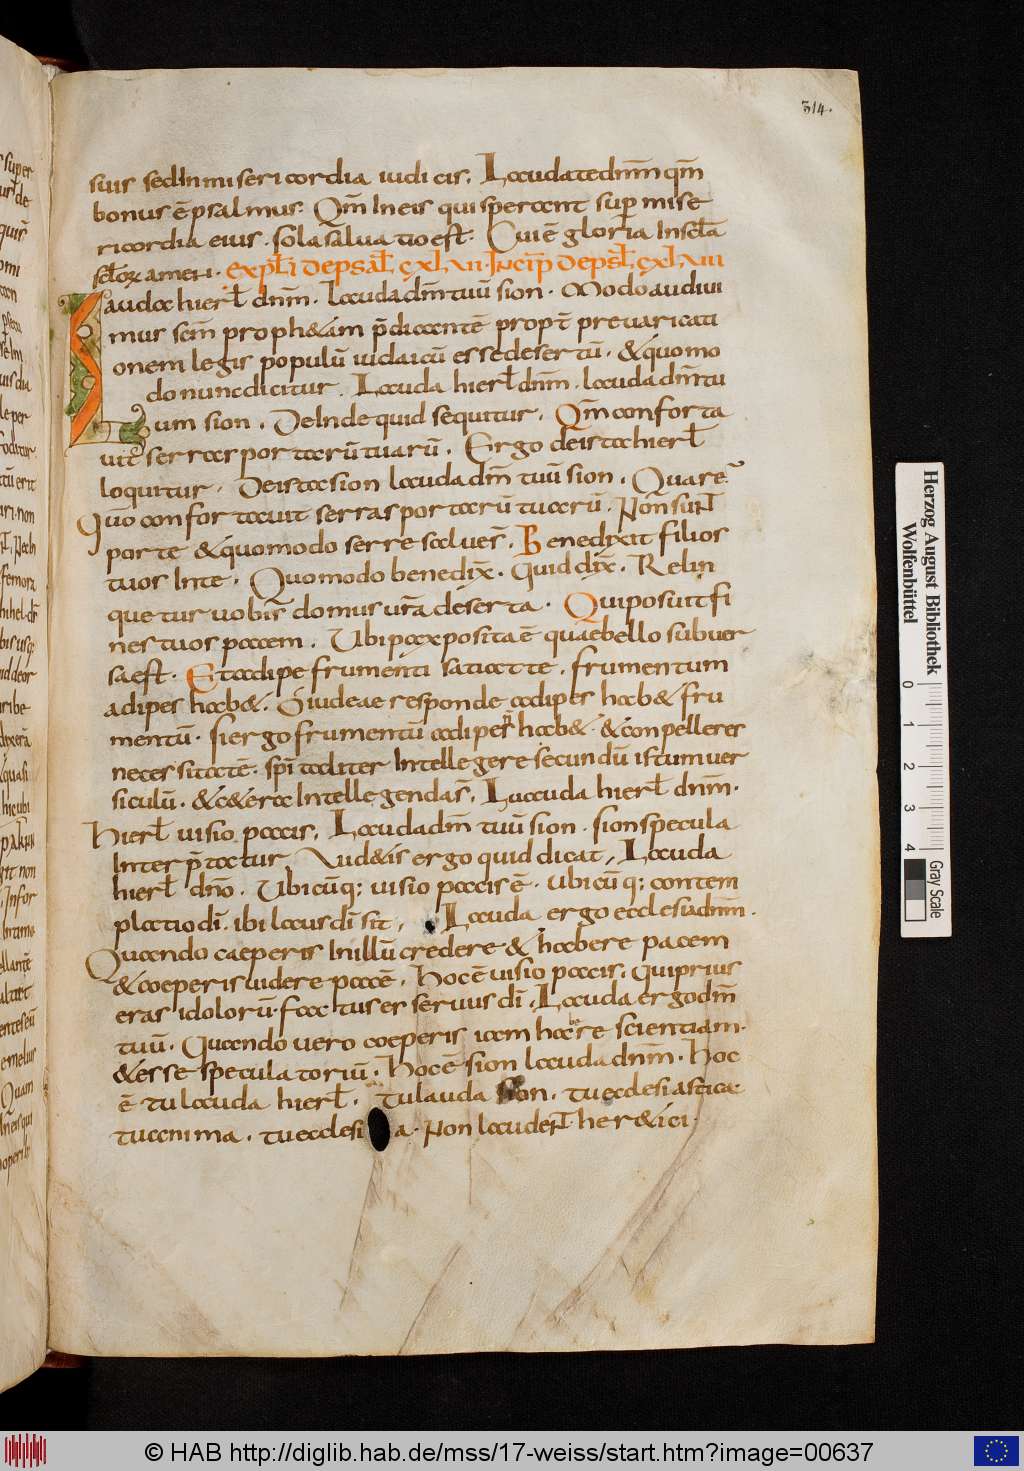 314.
suis sedInmisericordia iudicis. Laudatedn̄m qm̄
bonus ē psalmus. Qm̄ In eis qui sperant sup̄ mise
ricordia eius. sola salvatio est. Cui ē gloria In sc̄la
sc̄loꝝ amen. expl̄i de psal̄ cxlvii. Incip̄ de psl̄ cxlviii
Lauda hierl̄ dn̄m. lauda dm̄ tuū sion. Modo audivi
mus sc̄m proph&am p̄dicantē propt̄ prevaricati
onem legis populū iudaicū esse desertū. & quomo
do nunc dicitur. Lauda hierl̄ dn̄m. lauda dm̄ tu
um sion. DeInde quid sequitur. Qm̄ conforta
vit serras portarū tuarū. Ergo de ista hierl̄
loquitur. De ista sion lauda dm̄ tuū sion. Quare?
Qūo confortavit serras portarū tuarū. Non sunt
porte & quomodo serre saluen̄. Benedixit filios
tuos In te. Quomodo benedix̄. quid dix̄. Relin
quetur vobis domus ur̄a deserta. Qui posuit fi
nes tuos pacem. Ubi pax posita ē quae bello subver
sa est. Et adipe frumenti satiat te. frumentum
adipes hab&. O iudeae responde adipes hab& fru
mentū. si ergo frumentū adipes hab&. & compelleres
necessitatē. spi̅taliter Intellegere secundū istum ver
siculū. & c&era Intellegendas̄. Lauda hierl̄ dn̄m.
Hierl̄ visio pacis. Lauda dm̄ tuū sion. sion specula
Interp̄tatur Aud&is ergo quid dicat, Lauda
hierl̄ dn̄o. Ubicūq; visio pacis ē. ubicūq; contem
platio dī. ibi laus dī sit, Lauda ergo ecclesia dn̄m.
Quando caeperis In illū credere & habere pacem
& coeperis videre pacē. Hoc ē visio pacis. Qui prius
eras idolorū. factus es servus dī. Lauda ergo dm̄
tuū. Quando vero coeperis iam habere scientiam.
& esse speculatoriū. Hoc ē sion lauda dn̄m. Hoc
ē tu lauda hierl̄. Tu lauda sion. tu ecclesiasticae
tu anima. tu ecclesia. Non laudent her&ici.
Herzog August Bibliothek
Wolfenbüttel
0 1 2 3 4
Gray Scale
© HAB http://diglib.hab.de/mss/17-weiss/start.htm?image=00637